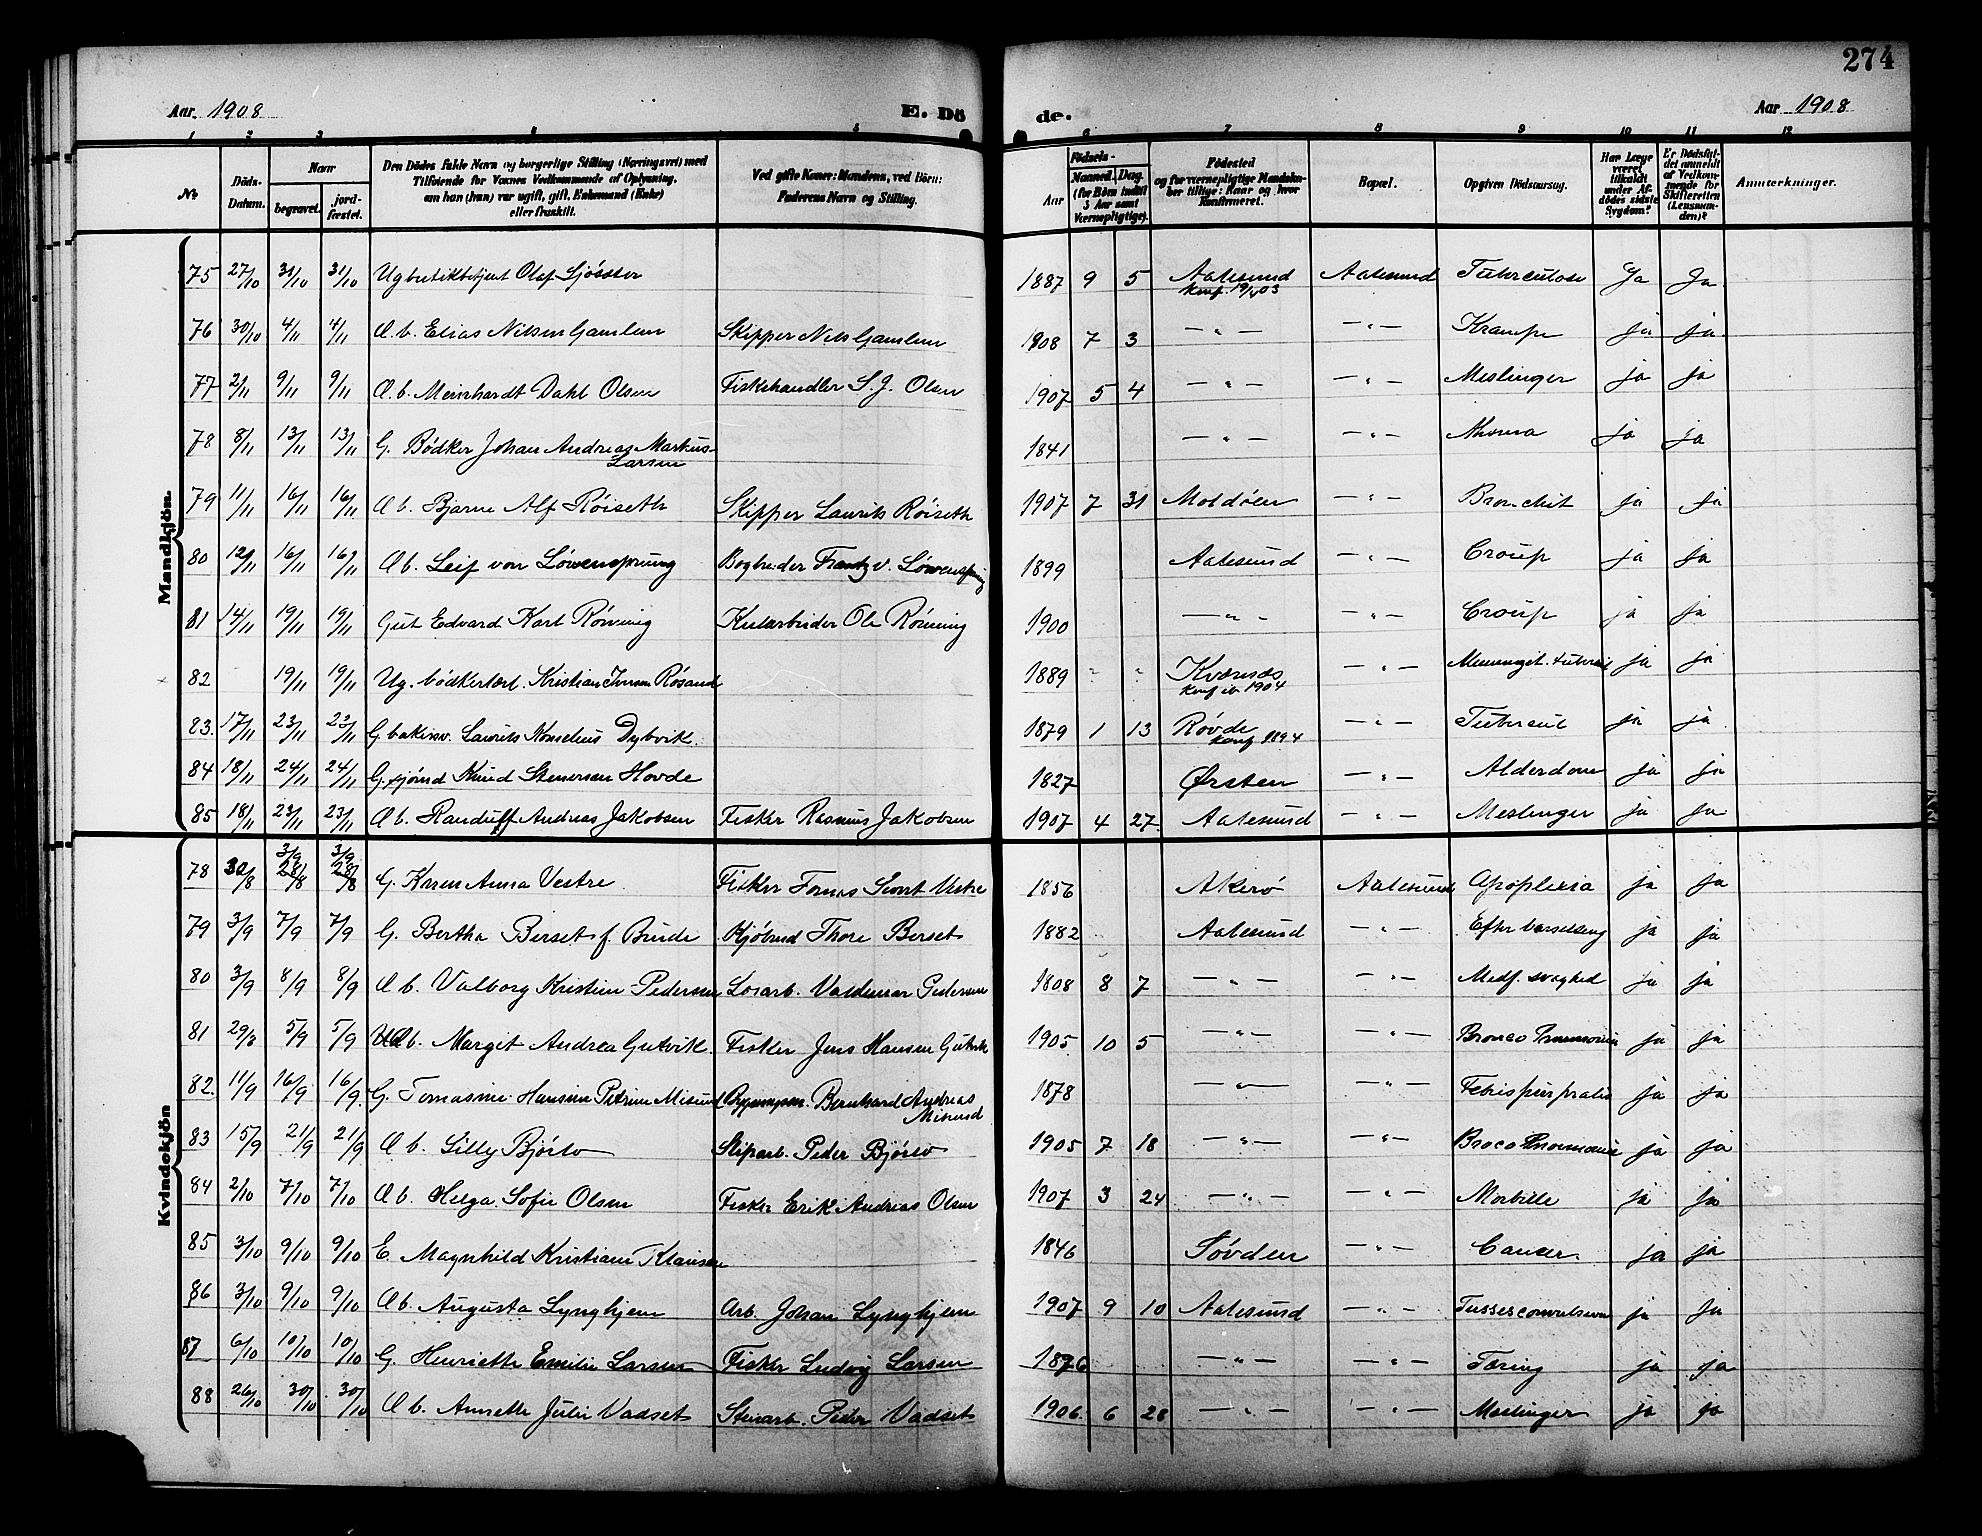 274
Aar 1908 E. Dö de. Aar 1908
1 2 3 4 5 6 7 8 9 10 11 12
No Döds-Datum. Naar begravet. jord-fæstet. Den Dödes fulde Navn og borgerlige Stilling (Næringsvei) med Tilföiende for Voxnes Vedkommende af Oplysning, om han (hun) var ugift, gift, Enkemand (Enke) eller fraskilt. Ved gifte Koner: Mandens, ved Börn: Faderens Navn og Stilling. Födsels- Aar Maaned. Dag. (for Börn indtil 5 Aar samt Værnepligtige). Födested og for værnepligtige Mandskaber tillige: Naar og hvor Konfirmeret. Bopæl. Opgiven Dödsaarsag. Har Læge været tilkaldt under Afdödes sidste Sygdom? Er Dödsfaldet anmeldt af Vedkommende for Skifteretten (Lensmanden)? Anmærkninger.
Mandkjön.
75 27/10 31/10 31/10 Ug butikbetjent Olaf 1887 9 5 Aalesund Aalesund Tuberculose Ja Ja
Konf. 19/4 03
76 30/10 4/11 4/11 Æ b. Elias Nilsen Gamlem Skipper Nils Gamlem 1908 7 3 — " — — " — Krampe ja ja
77 2/11 9/11 9/11 Æ. b. Meinhardt Dahl Olsen Fiskehandler S. J. Olsen 1907 5 4 — " — — " — Meslinger ja ja
78 8/11 13/11 13/11 G. Bödker Johan Andreas Markus 1841 — " — — " — ja ja
Larsen
79 11/11 16/11 16/11 Æ b. Bjarne Alf Röiseth Skipper Laurits Röiseth 1907 7 31 Moldöen — " — Bronchit ja ja
80 12/11 16/11 16/11 Æ b. Leif von Löwensprung Bogbinder Frantz v. Löwensprung 1899 Aalesund — " — Croup ja ja
81 14/11 19/11 19/11 Gut Edvard Karl Rönning Kularbeider Ole Rönning 1900 — " — — " — Croup ja ja
82 19/11 19/11 Ug. bödkerlærl. Kristian Iversen Rösand 1889 " " Kværnæs — " — ja ja
Konf ib. 1904
83. 17/11 23/11 23/11 G bakersv. Laurits Dybvik. 1879 1 13 Røvde — " — Tubercul ja ja
Konf 1894
84 18/11 24/11 24/11 G. Knud Stenersen Hovde 1827 Ørsten — " — Alderdom ja ja
85 18/11 23/11 23/11 Æ b. Randulff Andreas Jakobsen Fisker Rasmus Jakobsen 1907 4 27 Aalesund — " — Meslinger ja ja
Kvindekjön
3/9 3/9
78 30/8 28/8 28/8 G. Karen Anna Vestre Fisker Tomas Vestre 1856 Akerö Aalesund Apoplexia ja ja
79 3/9 7/9 7/9 G. Bertha Berset f. Brude Kjöbmd Thore Berset 1882 Aalesund — " — Efter barselseng ja ja
80 3/9 8/9 8/9 Æ b. Valborg Kristine Pedersen Losarb. Valdemar Pedersen 1808 8 7 — " — — " — Medf. svaghed ja ja
81 29/8 5/9 5/9 Æ b. Margit Andrea Gutvik. Fisker Jens Hansen Gutvik 1905 10 5 — " — — " — Bronco Pneumonia ja ja
82. 11/9 16/9 16/9. G. Tomasine Hansine Petrine Misund Bernhard Andreas 1878 — " — — " — ja ja
Misund
83 15/9 21/9 21/9 Æ b. Lilly Björlo Skiparb. Peder Björlo 1905 7 18 — " — — " — ja ja
84 2/10 7/10 7/10 Æ b. Helga Sofie Olsen Fisker Erik Andreas Olsen 1907 3 24 — " — — " — Morbille ja ja
85 3/10 9/10 9/10 E. Magnhild Kristiane Klausen 1846 Søvden — " — Cancer. ja ja
86 3/10 9/10 9/10 Æ b. Augusta Lynghjem Arb. Johan Lynghjem 1907 9 10 Aalesund — " — ja ja
87 6/10 10/10 10/10 G. Henriette Emilie Larsen Fisker Ludvig Larsen 1876 — " — — " — Tæring ja ja
88 26/10 30/10 30/10 Æ b. Annette Julie Vadset Stenarb. Peder Vadset 1906. 6 28 — " — — " — Meslinger ja ja